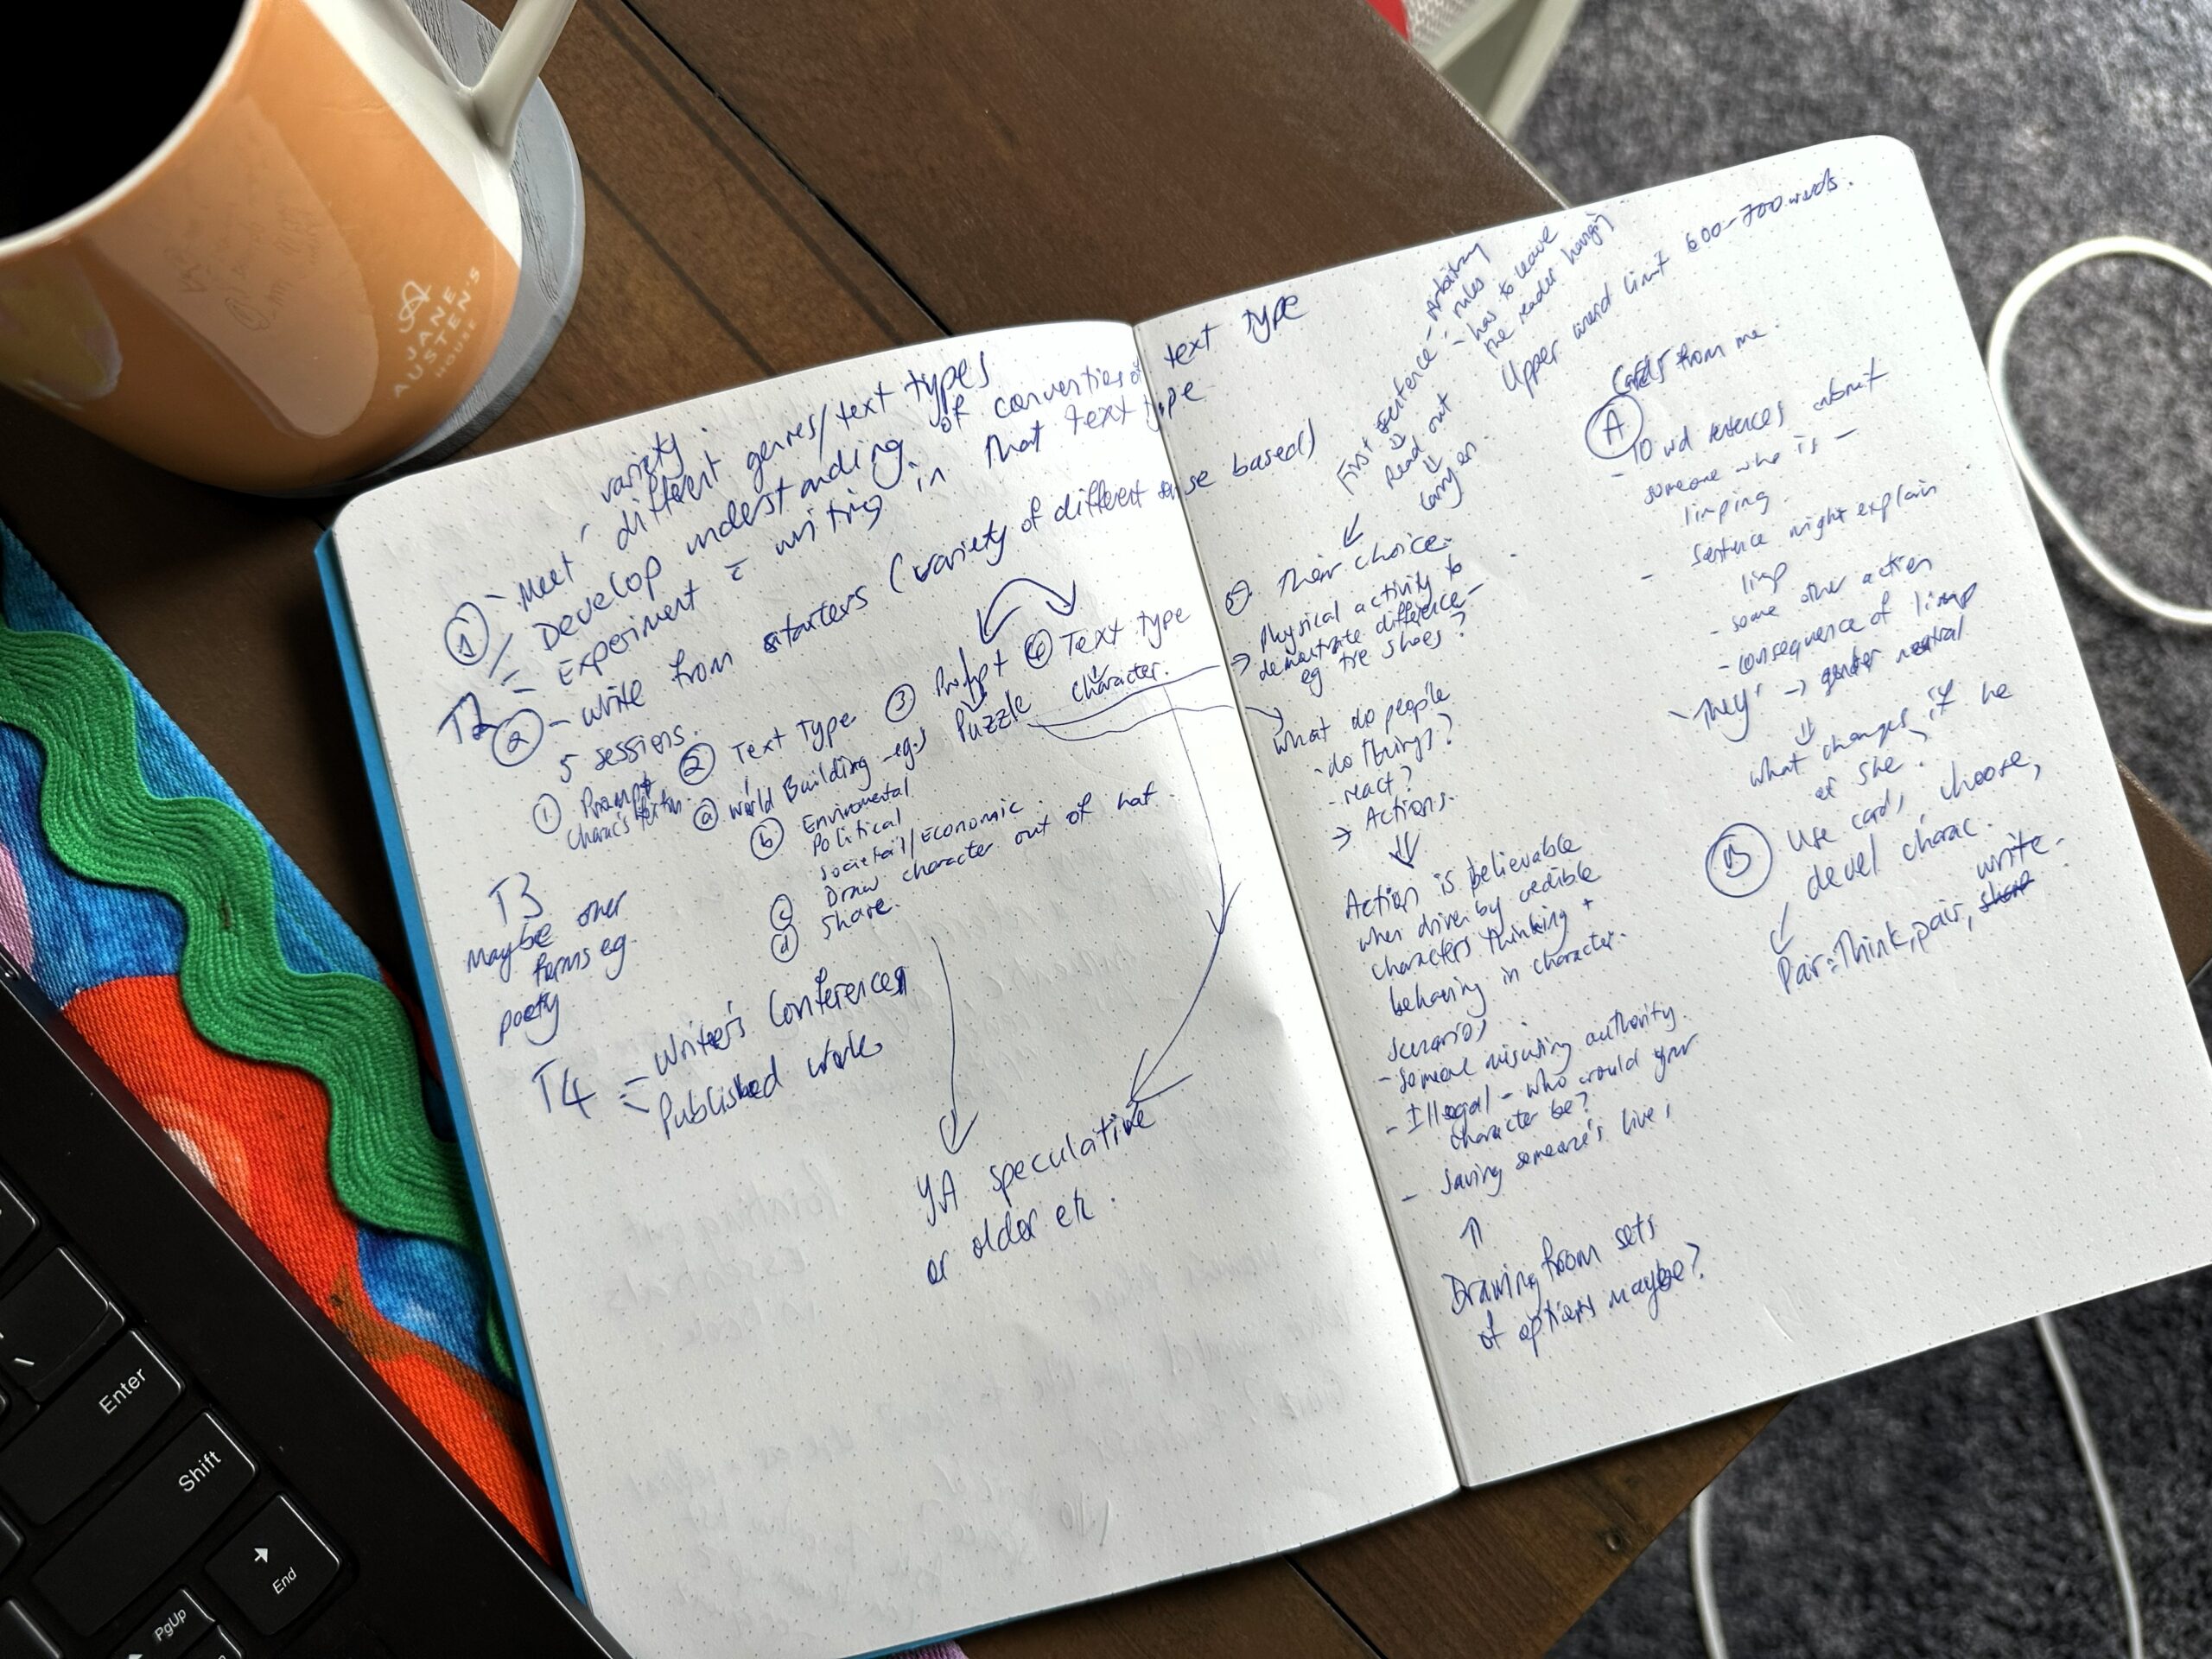 JANE
AUSTEN'S
HOUSE
Enter
Shift
End
PgUp
variety.
① - Meet different genres/text types
- Develop understanding of conventions of text type
- Experiment c̄ writing in that text type
T2
② - Write from starters (variety of different sense based)
5 sessions.
① Prompt ② Text Type ③ Prompt ④ Text type
ⓐ World Building - eg. Puzzle character.
ⓑ Enviromental
Political
Societal/Economic
ⓒ Draw character out of hat.
ⓓ Share.
T3
Maybe other
forms eg.
poetry
T4 - Writer's Conference
- Published work
YA speculative
or older etc.
First sentence - Arbitrary
rules
- has to leave
the reader hanging
⇓
Read out
⇓
Carry on.
Upper word limit 600-700 words.
⑤ Their choice.
→ Physical activity to
demonstrate difference -
eg tie shoes?
What do people
- do/things?
- react?
→ Actions.
Action is believable
when driven by credible
characters thinking +
behaving in character.
Scenarios
- Someone misusing authority.
- Illegal - who would your
character be?
- Saving someone's live
Drawing from sets
of options maybe?
Ⓐ Cards from me.
- 10 wd sentences about
someone who is -
limping.
- Sentence might explain
limp
- some other action
- consequence of limp
- 'They' → gender neutral
⇓
what changes if he
or she?
Ⓑ Use cards, choose,
devel charac.
write.
Pair: Think, pair, share